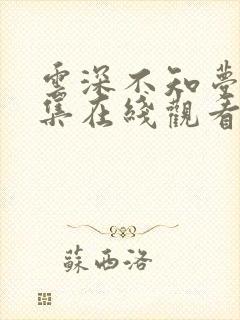 雲深不知夢
集在綫觀看
蘇西洛